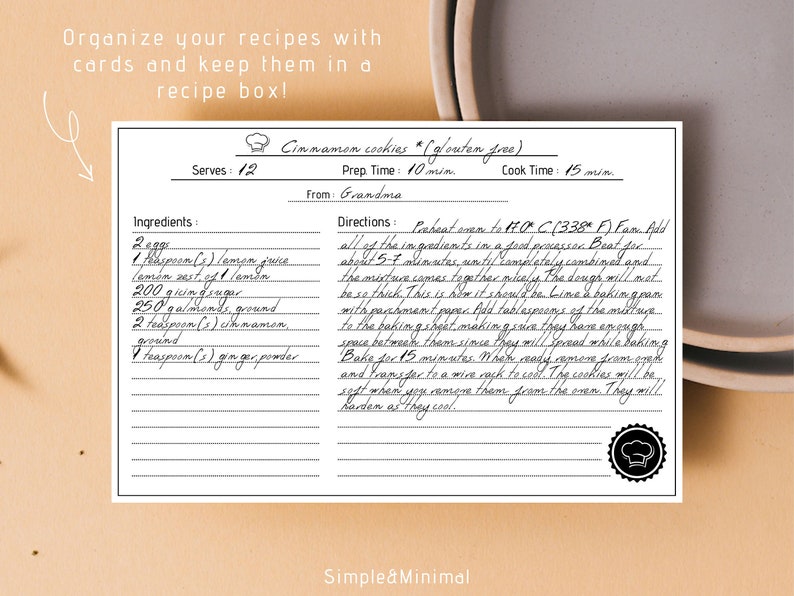 Organize your recipes with
cards and keep them in a
recipe box!
Cinnamon cookies *(glouten free)
Serves : 12 Prep. Time : 10 min. Cook Time : 15 min.
From : Grandma
Ingredients :
2 eggs
1 teaspoon(s) lemon juice
lemon zest, of 1 lemon
200 g icing sugar
250 g almonds, ground
2 teaspoon(s) cinnamon,
ground
1 teaspoon(s) ginger, powder
Directions : Preheat oven to 170* C (338* F) Fan. Add
all of the ingredients in a food processor. Beat for
about 5-7 minutes, until completely combined and
the mixture comes together nicely. The dough will not
be so thick. This is how it should be. Line a baking pan
with parchment paper. Add tablespoons of the mixture
to the baking sheet, making sure they have enough
space between them since they will spread while baking.
Bake for 15 minutes. When ready, remove from oven
and transfer to a wire rack to cool. The cookies will be
soft when you remove them from the oven. They will
harden as they cool.
Simple&Minimal